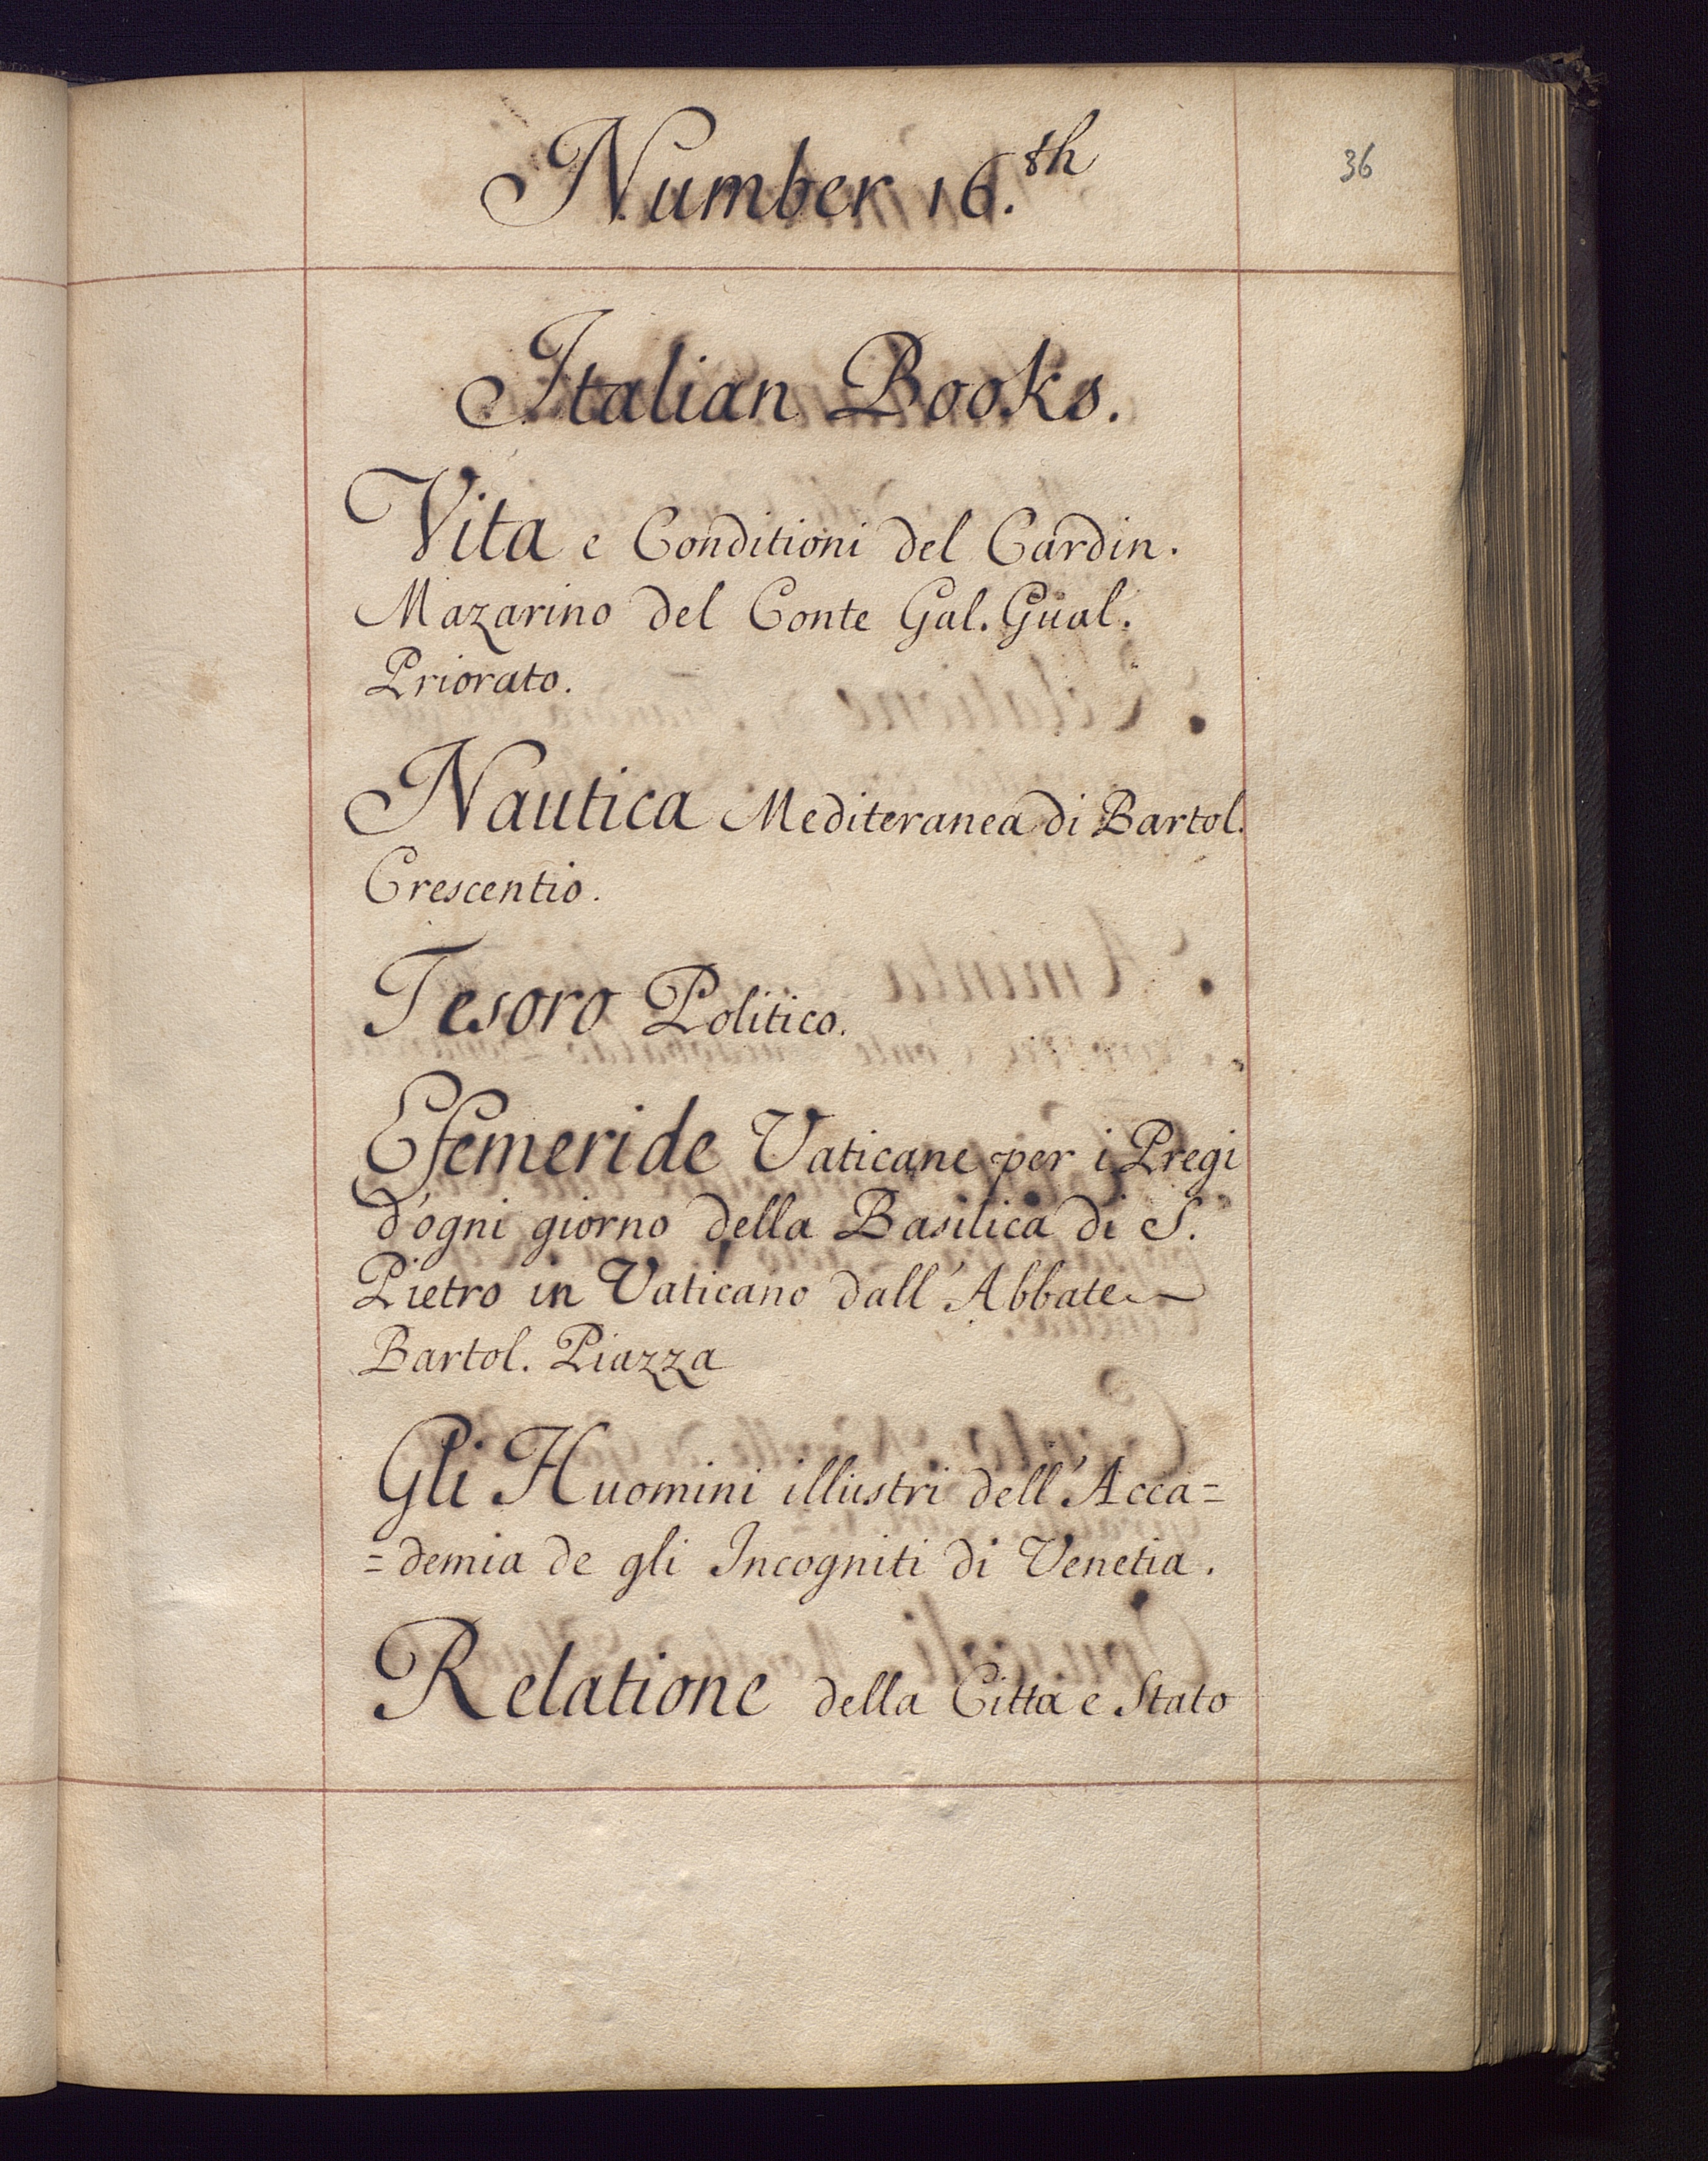 36
Number 16.th
Italian Books.
Vita e Conditioni del Cardin.
Mazarino del Conte Gal. Gual.
Priorato.
Nautica Mediteranea di Bartol.
Crescentio.
Tesoro Politico.
Efemeride Vaticane per i Pregi
d'ogni giorno della Basilica di S.
Pietro in Vaticano dall' Abbate
Bartol. Piazza
Gli Huomini illustri dell' Acca=
=demia de gli Incogniti di Venetia.
Relatione della Citta e Stato